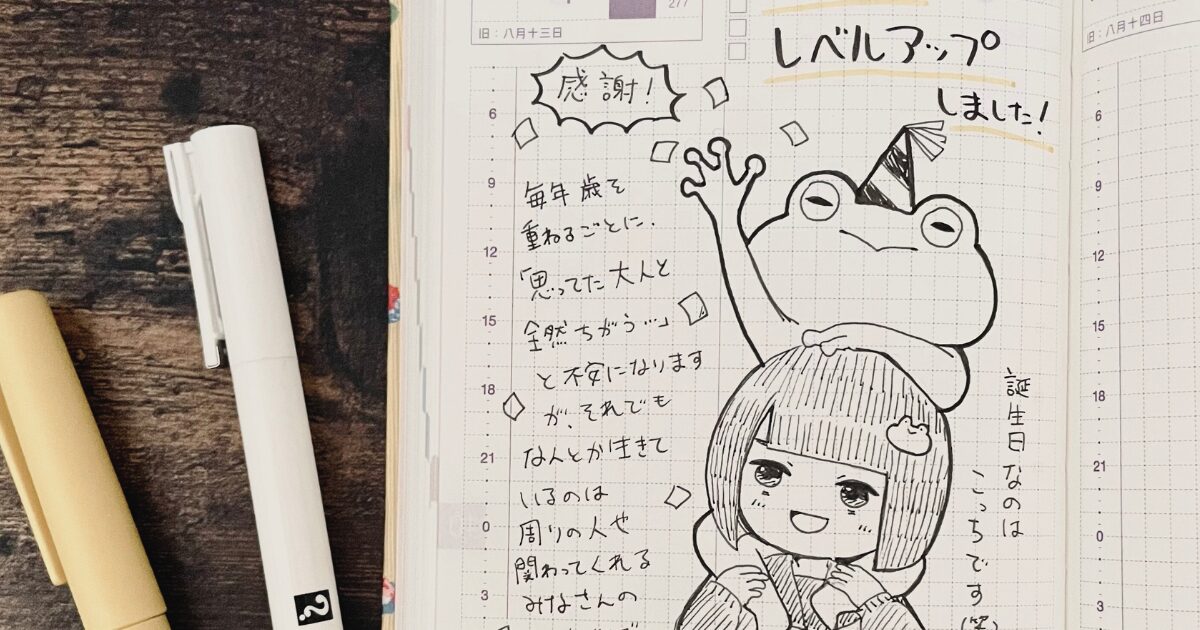 277
旧：八月十三日
旧：八月十四日
レベルアップ
しました！
感謝！
毎年歳を
重ねるごとに、
「思ってた大人と
全然ちがう…」
と不安になります
が、それでも
なんとか生きて
いるのは
周りの人や
関わってくれる
みなさんの
誕生日なのは
こっちです
(笑)
6
9
12
15
18
21
0
3
6
9
12
15
18
21
0
3
?